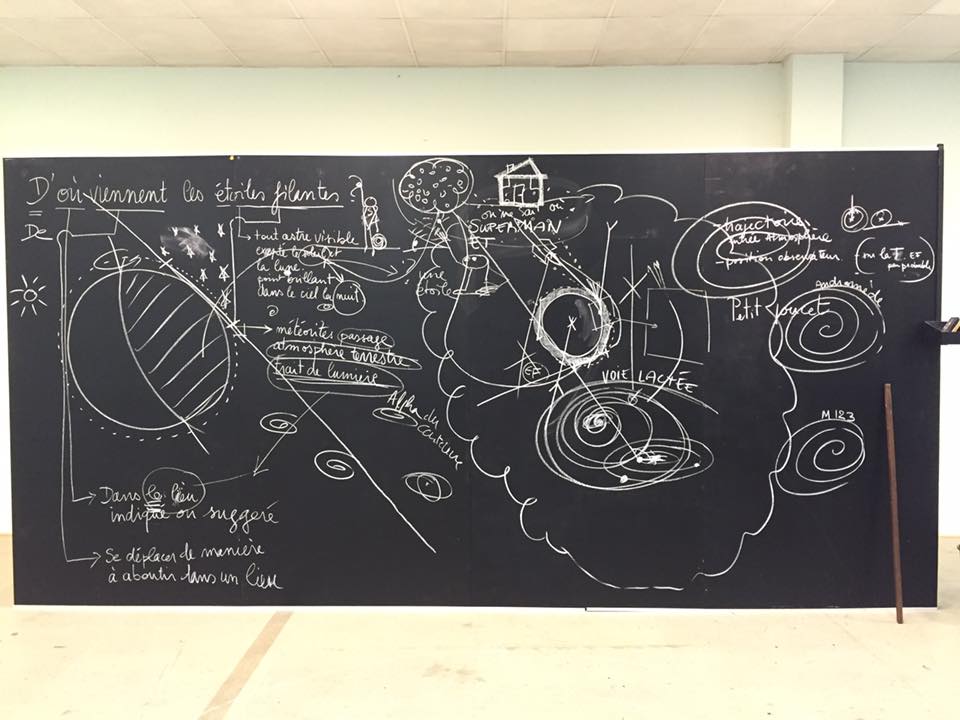 D'où viennent les étoiles filantes ?
De
tout astre visible
excepté le soleil et
la lune
point brillant
dans le ciel la nuit
météorites passage
atmosphère terrestre
trait de lumière
Dans le lieu
indiqué ou suggéré
Se déplacer de manière
à aboutir dans un lieu
Alpha du
centaure
une
étoile
où
SUPERMAN
ET
VOIE LACTÉE
trajectoire
entrée atmosphère
- position observateur
Petit poucet
andromède
M 123